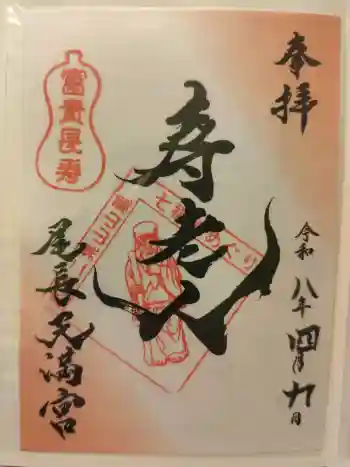 奉拝
令和八年四月九日
寿老人
富貴長寿
七福神めぐり
尾長天満宮